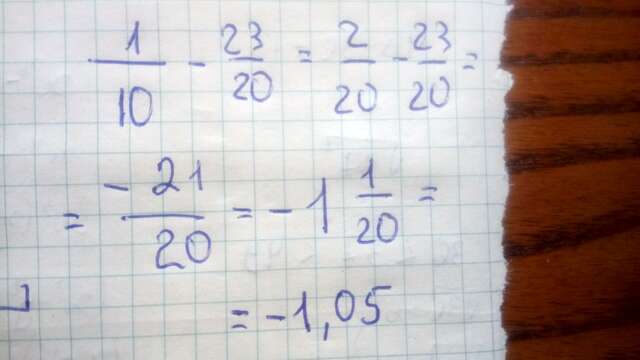 1/10 - 23/20 = 2/20 - 23/20 =
= -21/20 = -1 1/20 =
= -1,05